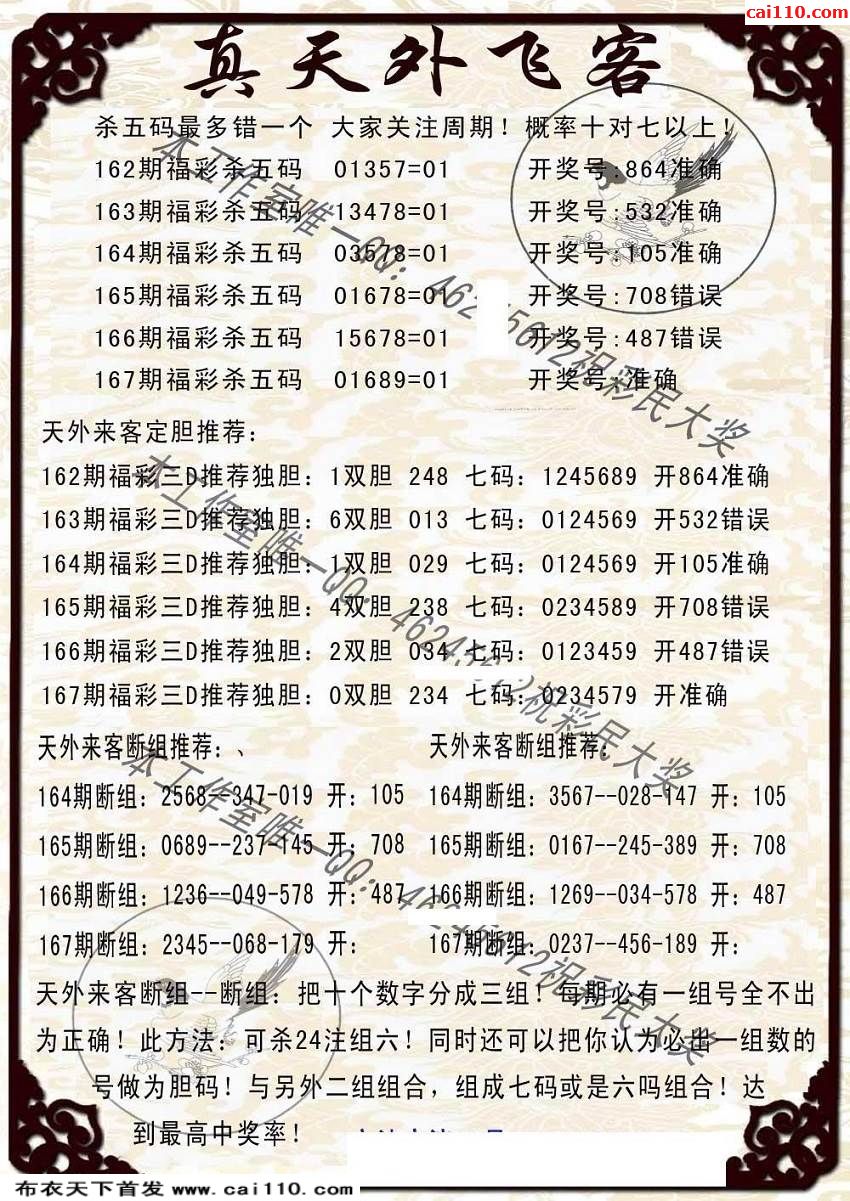 cai110.com
真天外飞客
杀五码最多错一个 大家关注周期！概率十对七以上！
162期福彩杀五码 01357=01 开奖号:864准确
163期福彩杀五码 13478=01 开奖号:532准确
164期福彩杀五码 03578=01 开奖号:105准确
165期福彩杀五码 01678=01 开奖号:708错误
166期福彩杀五码 15678=01 开奖号:487错误
167期福彩杀五码 01689=01 开奖号:准确
天外来客定胆推荐：
162期福彩三D推荐独胆：1双胆 248 七码：1245689 开864准确
163期福彩三D推荐独胆：6双胆 013 七码：0124569 开532错误
164期福彩三D推荐独胆：1双胆 029 七码：0124569 开105准确
165期福彩三D推荐独胆：4双胆 238 七码：0234589 开708错误
166期福彩三D推荐独胆：2双胆 034 七码：0123459 开487错误
167期福彩三D推荐独胆：0双胆 234 七码：0234579 开准确
天外来客断组推荐：、 天外来客断组推荐：
164期断组：2568--347-019 开：105 164期断组：3567--028-147 开：105
165期断组：0689--237-145 开：708 165期断组：0167--245-389 开：708
166期断组：1236--049-578 开：487 166期断组：1269--034-578 开：487
167期断组：2345--068-179 开： 167期断组：0237--456-189 开：
天外来客断组--断组：把十个数字分成三组！每期必有一组号全不出
为正确！此方法：可杀24注组六！同时还可以把你认为必出一组数的
号做为胆码！与另外二组组合，组成七码或是六吗组合！达
到最高中奖率！
本工作室唯一QQ：462 5612祝彩民大奖
本工作室唯一QQ：4624 612祝彩民大奖
本工作室唯一QQ：462 5612祝彩民大奖
布衣天下首发 www.cai110.com